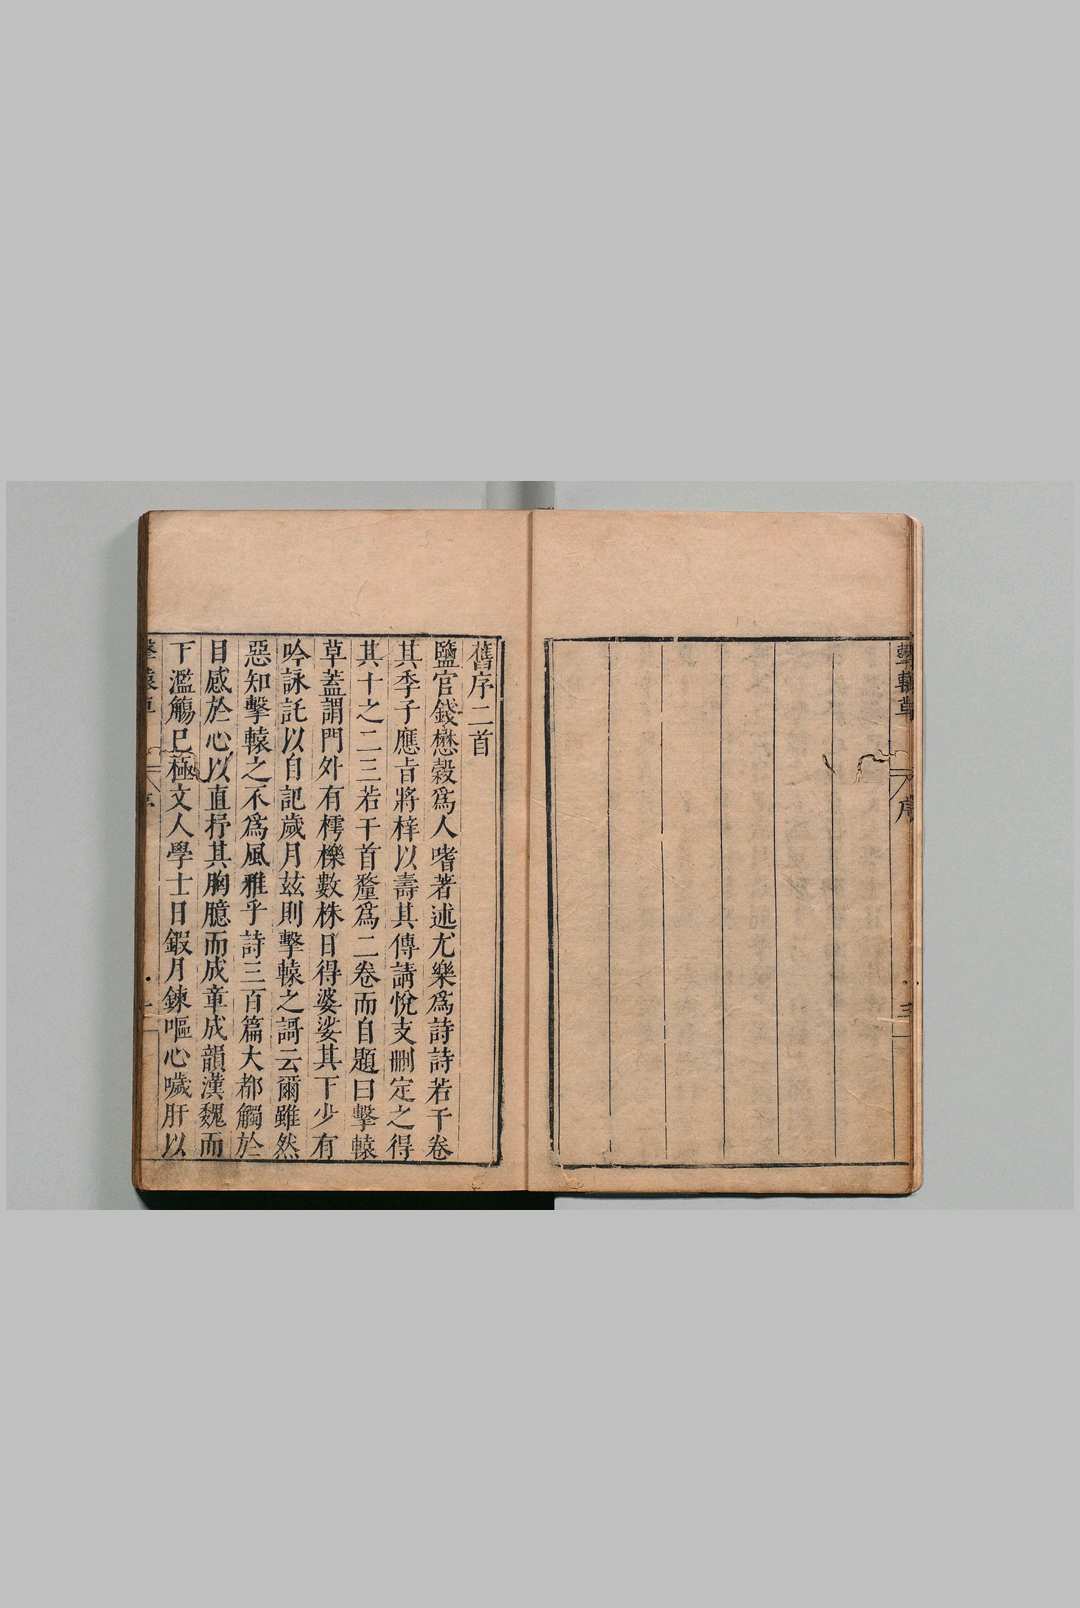 擊轅草
序
三
舊序二首
鹽官錢懋穀爲人嗜著述尤樂爲詩詩若干卷
其季子應旨將梓以壽其傳請悅支刪定之得
其十之二三若干首釐爲二卷而自題曰擊轅
草蓋謂門外有樗櫟數株日得婆娑其下少有
吟詠託以自記歲月玆則擊轅之謌云爾雖然
惡知擊轅之不爲風雅乎詩三百篇大都觸於
目感於心以直抒其胸臆而成章成韻漢魏而
下濫觴已極文人學士日鍜月鍊嘔心噦肝以
擊轅草
序